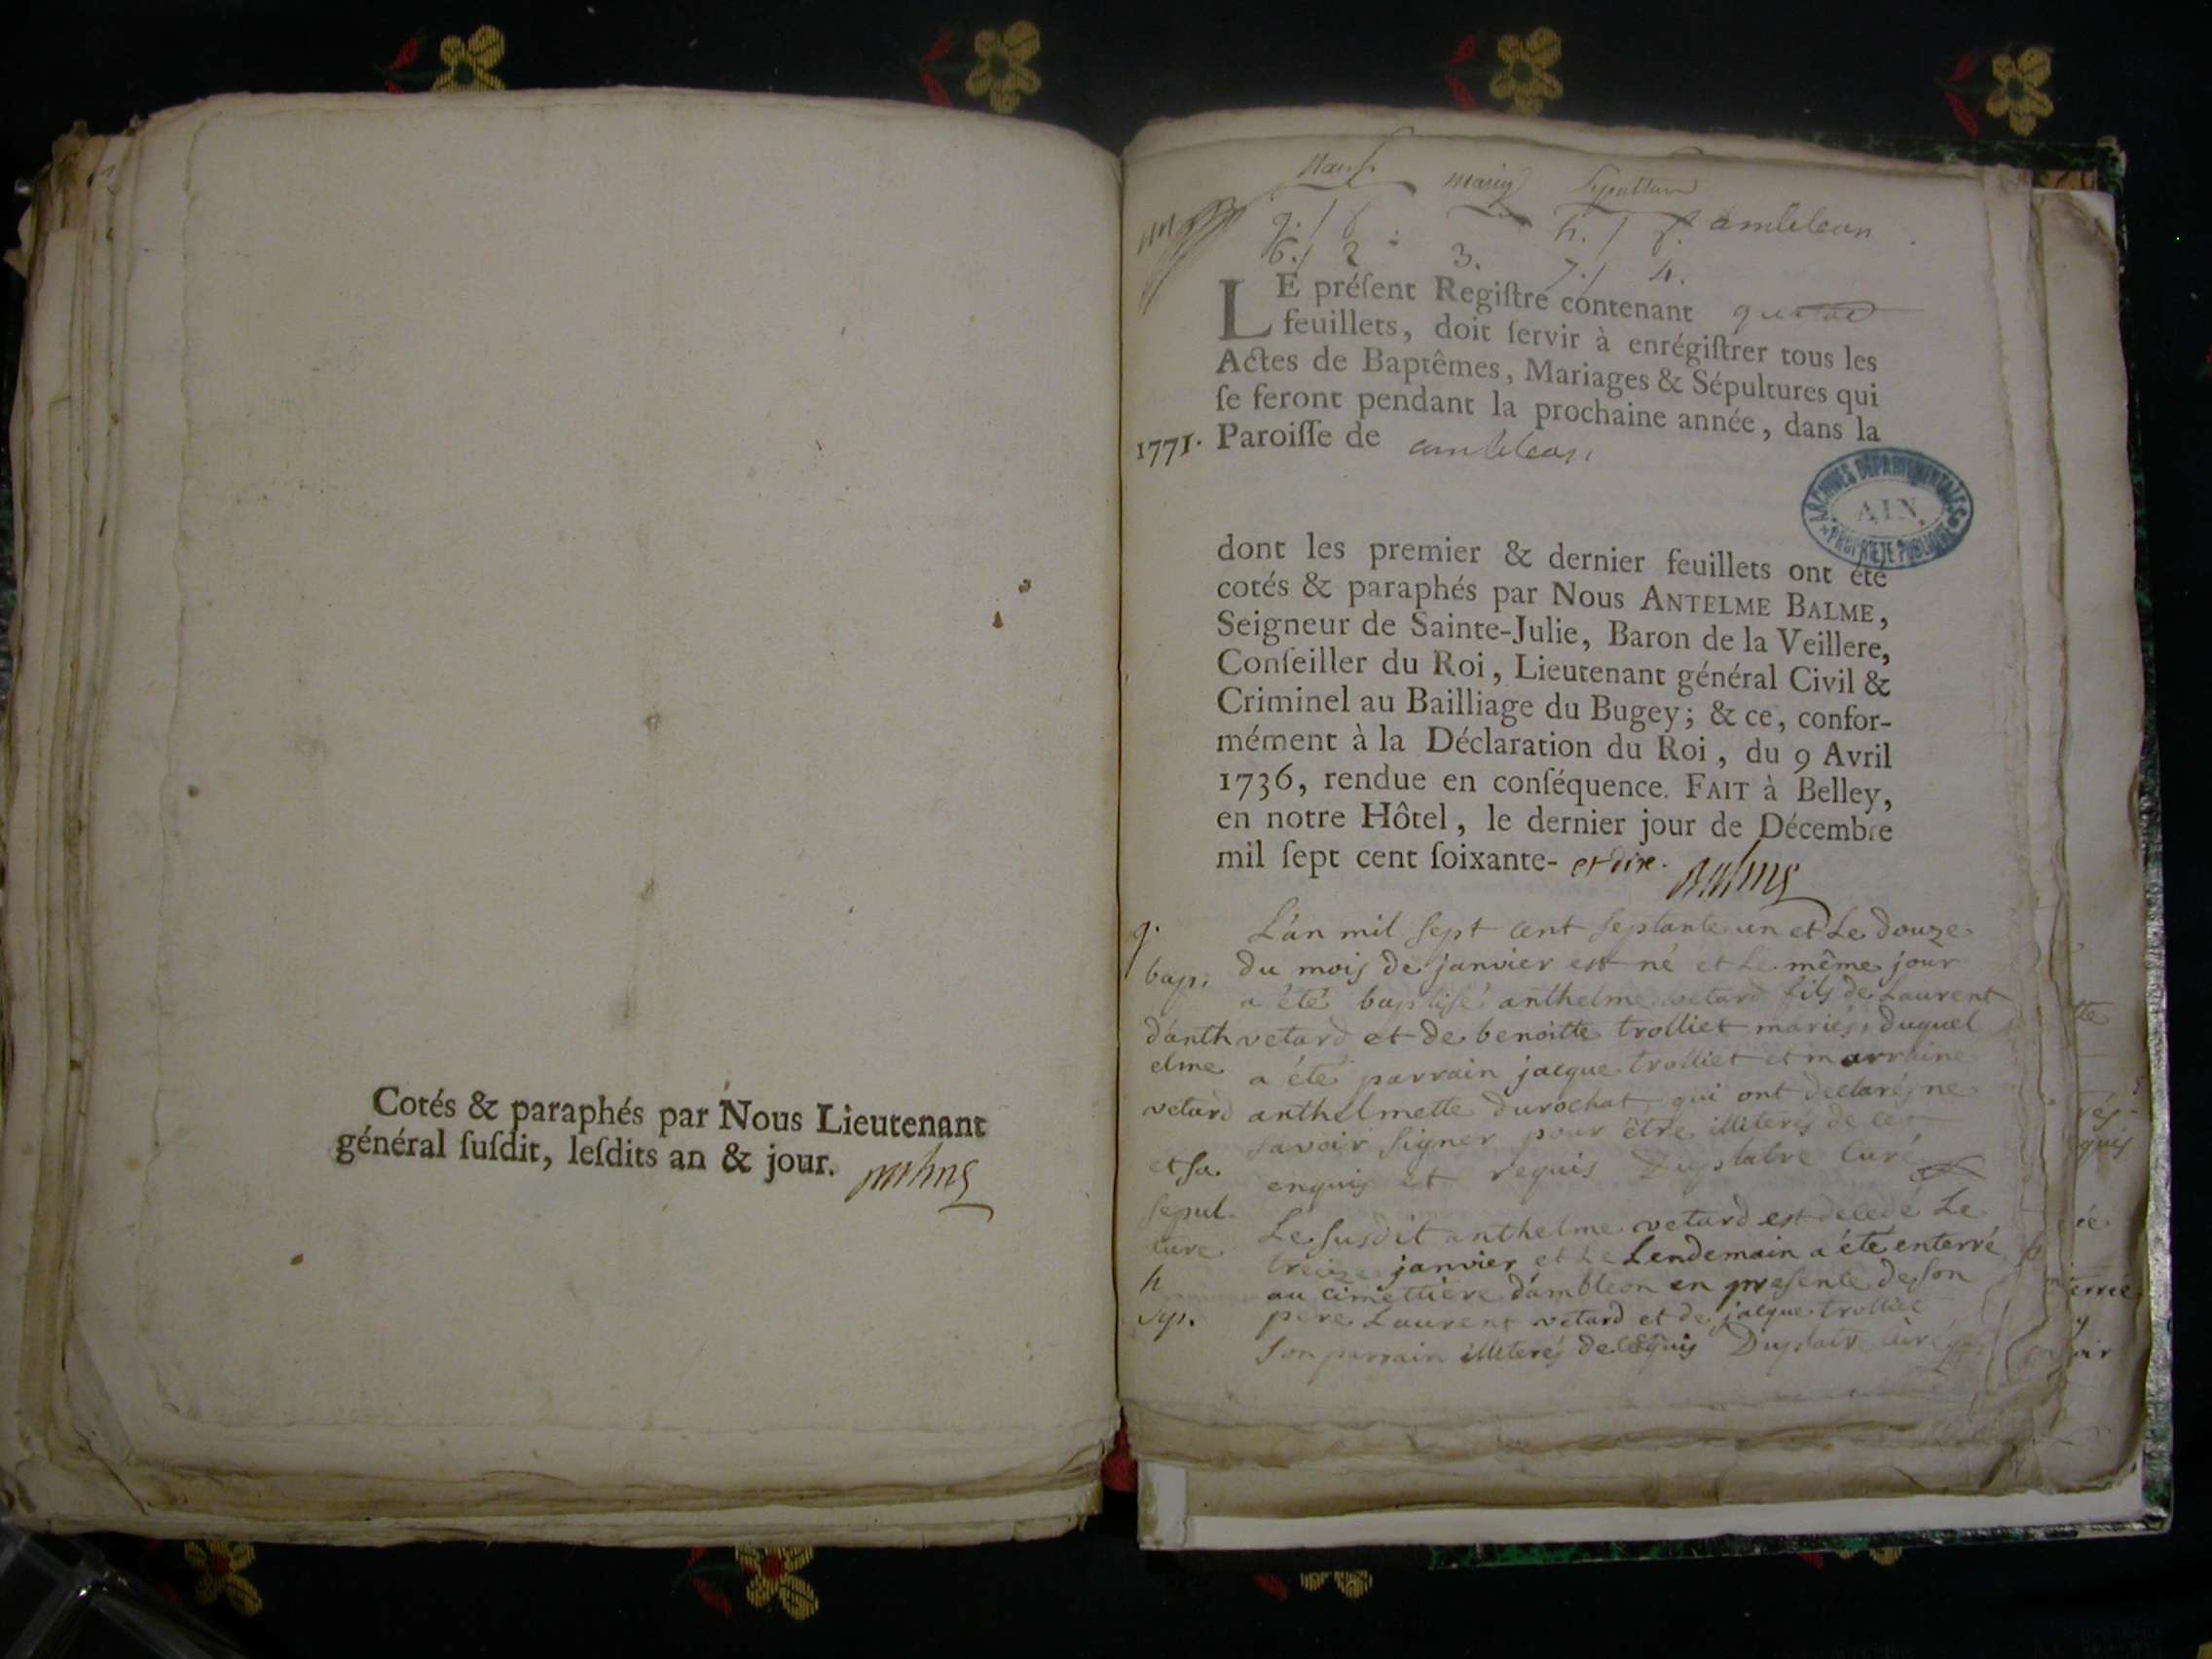 Cotés & paraphés par Nous Lieutenant
général ſuſdit, leſdits an & jour.
Naiss. mariag Sepulture
g. / 8. h. / 8. ambleon
6. / 2 3. 7. / 4.
LE préſent Regiſtre contenant quatre
feuillets, doit ſervir à enrégiſtrer tous les
Actes de Baptêmes, Mariages & Sépultures qui
ſe feront pendant la prochaine année, dans la
1771. Paroiſſe de ambleon
ARCHIVES DÉPARTEMENTALES
AIN
PROPRIÉTÉ PUBLIQUE
dont les premier & dernier feuillets ont été
cotés & paraphés par Nous ANTELME BALME,
Seigneur de Sainte-Julie, Baron de la Veillere,
Conſeiller du Roi, Lieutenant général Civil &
Criminel au Bailliage du Bugey; & ce, confor-
mément à la Déclaration du Roi, du 9 Avril
1736, rendue en conſéquence. FAIT à Belley,
en notre Hôtel, le dernier jour de Décembre
mil ſept cent ſoixante- et dix. Balme
g.
bap.
d'anth
elme
vetard
et sa
sepul-
ture
h
sep.
L'an mil sept cent septante un et Le douze
du mois de janvier est né et Le même jour
a été baptisé anthelme vetard fils de Laurent
vetard et de benoitte trolliet mariés, duquel
a été parrain jacque trolliet et marraine
anthelmette durochat, qui ont declarés ne
savoir signer pour être illiterés de ce
enquis et requis Duplatre Curé
Le susdit anthelme vetard est decedé Le
treize janvier et Le Lendemain a été enterré
au cimettiere d'ambleon en presence de son
pere Laurent vetard et de jacque trolliet
son parrain illiterés de ce enquis Duplatre curé